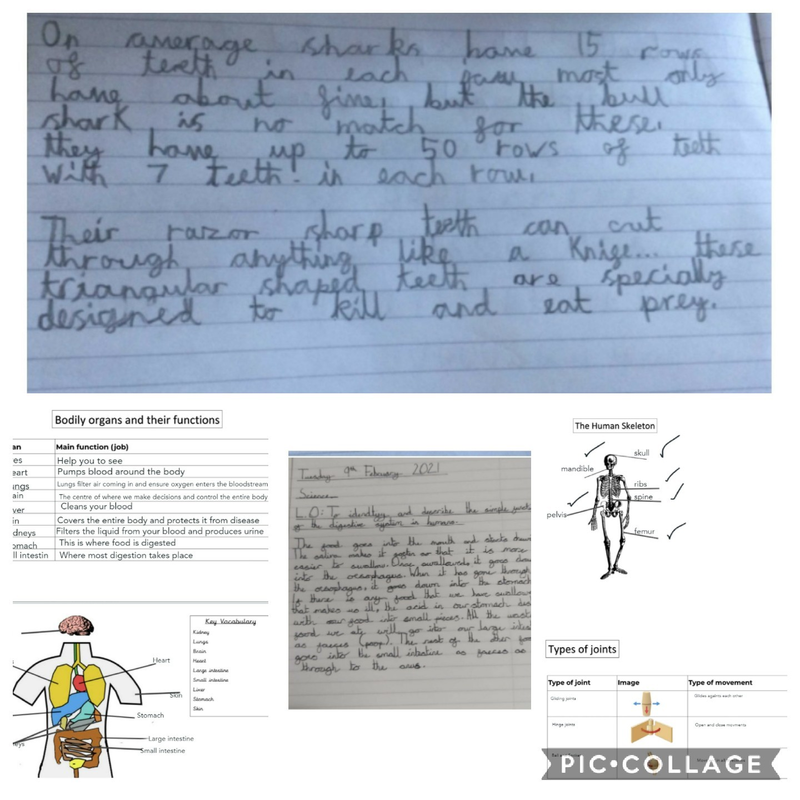 On average sharks have 15 rows
of teeth in each jaw most only
have about five, but the bull
shark is no match for these.
they have up to 50 rows of teeth
with 7 teeth! in each row.
Their razor sharp teeth can cut
through anything like a Knife... these
triangular shaped teeth are specially
designed to kill and eat prey.
Bodily organs and their functions
an Main function (job)
es Help you to see
eart Pumps blood around the body
ngs Lungs filter air coming in and ensure oxygen enters the bloodstream
ain The centre of where we make decisions and control the entire body
ver Cleans your blood
in Covers the entire body and protects it from disease
dneys Filters the liquid from your blood and produces urine
omach This is where food is digested
ll intestin Where most digestion takes place
Heart
Skin
Stomach
Large intestine
Small intestine
eys
Key Vocabulary
Kidney
Lungs
Brain
Heart
Large intestine
Small intestine
Liver
Stomach
Skin
Tuesday 9th February 2021
Science
L.O: To identify and describe the simple
of the digestive system in humans.
The food goes into the mouth and starts
The saliva makes it so that it is more
easier to swallow. Once swallowed, it goes
into the oesophagus. When it has gone through
the oesophagus, it goes down into the stomach
If there is any food that we have
that makes us ill, the acid in our stomach
our food into small pieces. All the
food we ate will go into our large
as faeces (poop). The rest of the other
goes into the small intestine as faeces
through to the anus.
The Human Skeleton
skull
mandible
ribs
spine
pelvis
femur
Types of joints
Type of joint Image Type of movement
Gliding joints Glides against each other
Hinge joints Open and close movements
PIC•COLLAGE